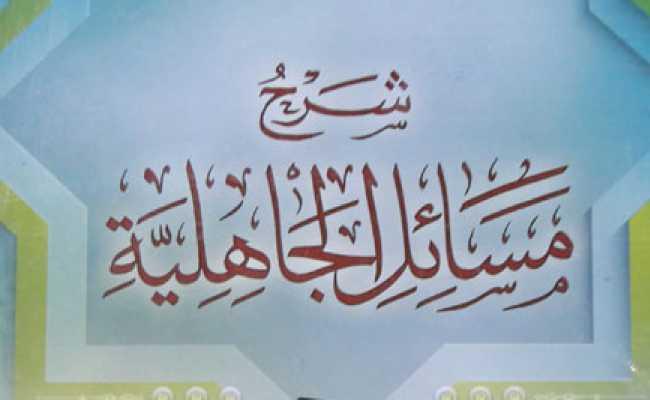 شَرْحُ
مَسَائِلِ الْجَاهِلِيَّةِ